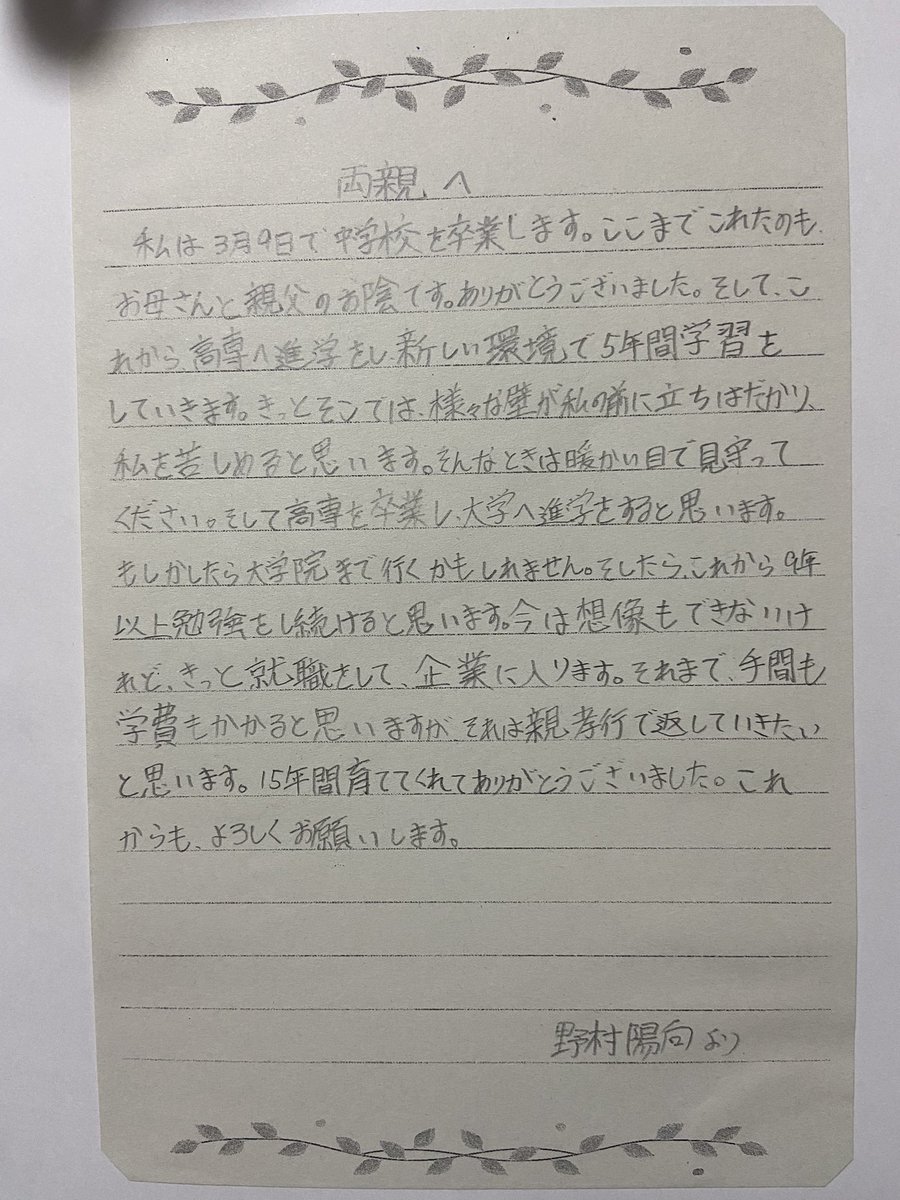 両親へ
私は3月9日で中学校を卒業します。ここまでこれたのも、
お母さんと親父のお陰です。ありがとうございました。そして、こ
れから、高専へ進学をし、新しい環境で5年間学習を
していきます。きっとそこでは、様々な壁が私の前に立ちはだかり、
私を苦しめると思います。そんなときは暖かい目で見守って
ください。そして高専を卒業し、大学へ進学をすると思います。
もしかしたら大学院まで行くかもしれません。そしたら、これから9年
以上勉強をし続けると思います。今は想像もできないけ
れど、きっと就職をして、企業に入ります。それまで、手間も
学費もかかると思いますが、それは親孝行で返していきたい
と思います。15年間育ててくれてありがとうございました。これ
からも、よろしくお願いします。
野村陽向より